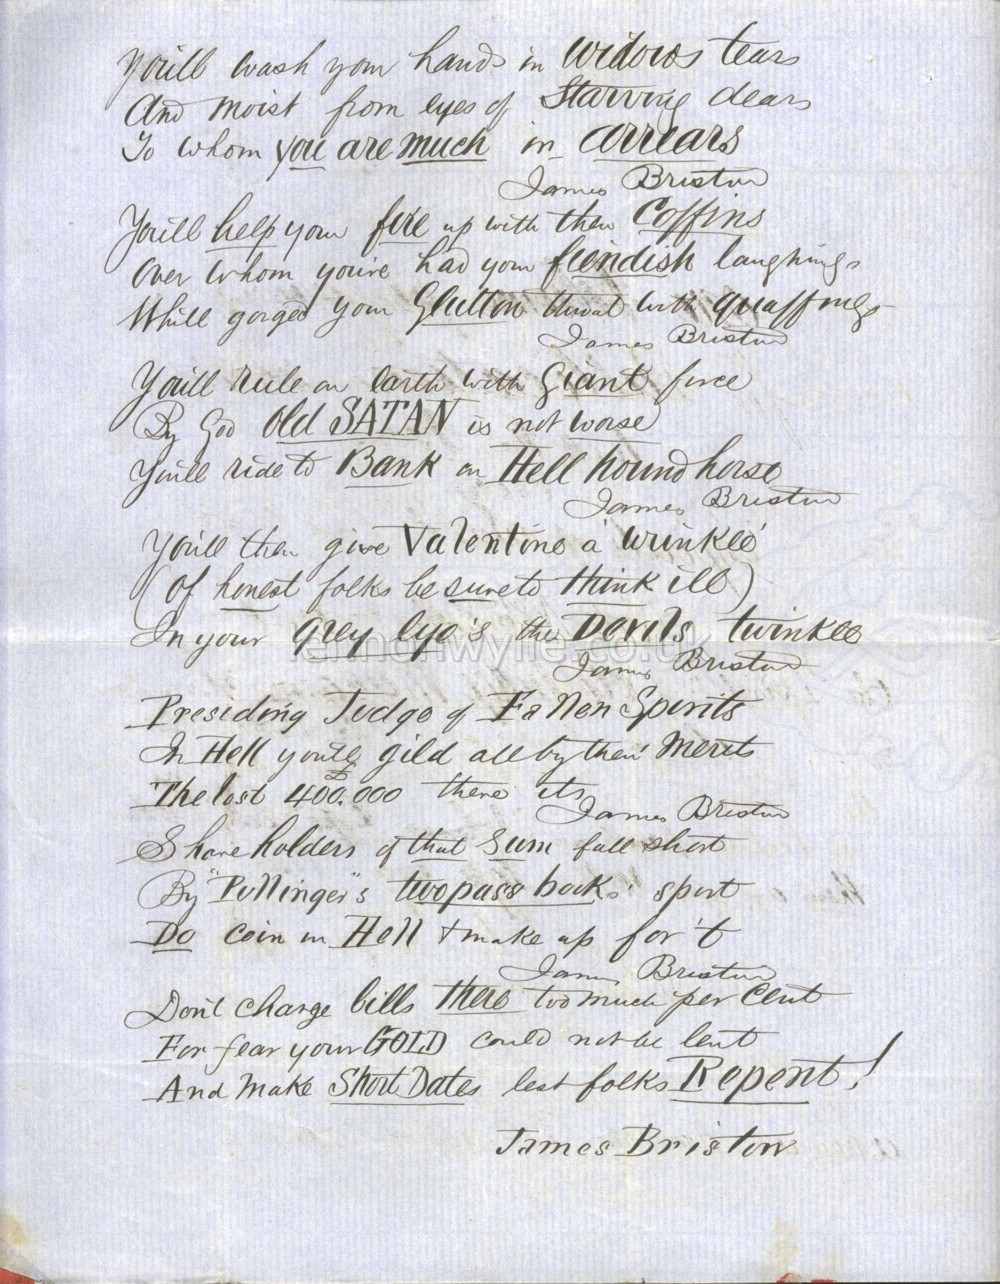 You'll wash your hands in widows tears
And moist from eyes of Starving dears
To whom you are much in arrears
James Briston
You'll help your fire up with their Coffins
Over whom you've had your fiendish laughings
While gorged your Glutton throat with quaffings
James Briston
You'll rule on earth with Giant force
By God old SATAN is not worse
You'll ride to Bank on Hell hound horse
James Briston
You'll then give Valentine a 'wrinkle'
(Of honest folks be sure to think ill)
In your grey eye's the Devils twinkle
James Briston
lennonwylie.co.uk
Presiding Judge of Fallen Spirits
In Hell you'll gild all by their merits
The lost £400.000 there its
James Briston
Shareholders of that sum fall short
By "Pullinger"s two pass books' sport
Do coin in Hell & make up for 't
James Briston
Don't charge bills there too much per Cent
For fear your GOLD could not be lent
And make Short Dates lest folks Repent!
James Briston